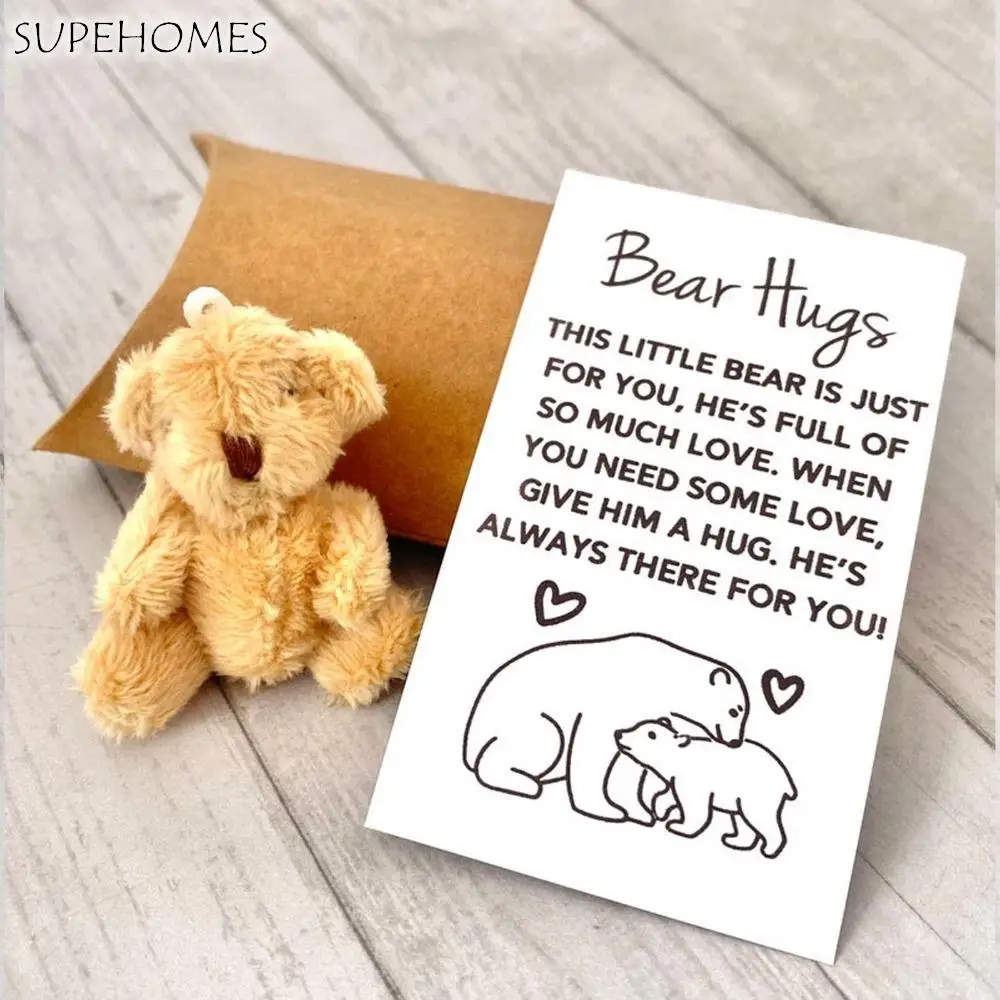 SUPEHOMES
Bear Hugs
THIS LITTLE BEAR IS JUST
FOR YOU, HE'S FULL OF
SO MUCH LOVE. WHEN
YOU NEED SOME LOVE,
GIVE HIM A HUG. HE'S
ALWAYS THERE FOR YOU!